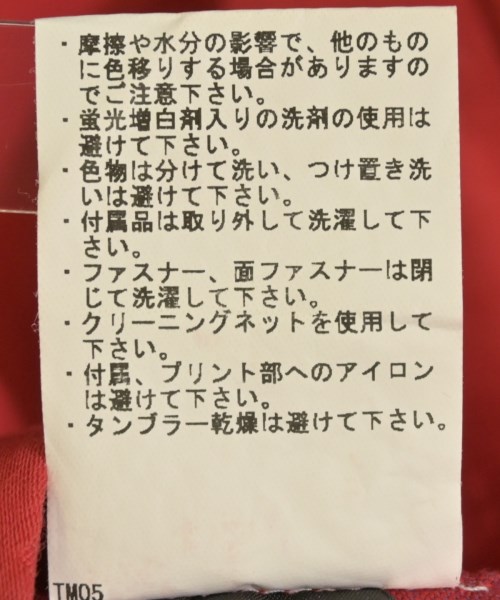 ・摩擦や水分の影響で、他のもの
に色移りする場合がありますの
でご注意下さい。
・蛍光増白剤入りの洗剤の使用は
避けて下さい。
・色物は分けて洗い、つけ置き洗
いは避けて下さい。
・付属品は取り外して洗濯して下
さい。
・ファスナー、面ファスナーは閉
じて洗濯して下さい。
・クリーニングネットを使用して
下さい。
・付属、プリント部へのアイロン
は避けて下さい。
・タンブラー乾燥は避けて下さい。
TM05